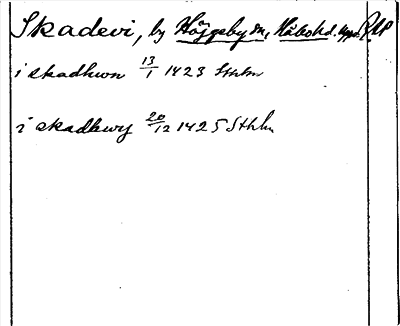 Skadevi, by Häggeby sn, Håbo hd. Upps. RAP
i skadhwn 13/1 1423 Sthlm
i skadhwy 20/12 1425 Sthlm